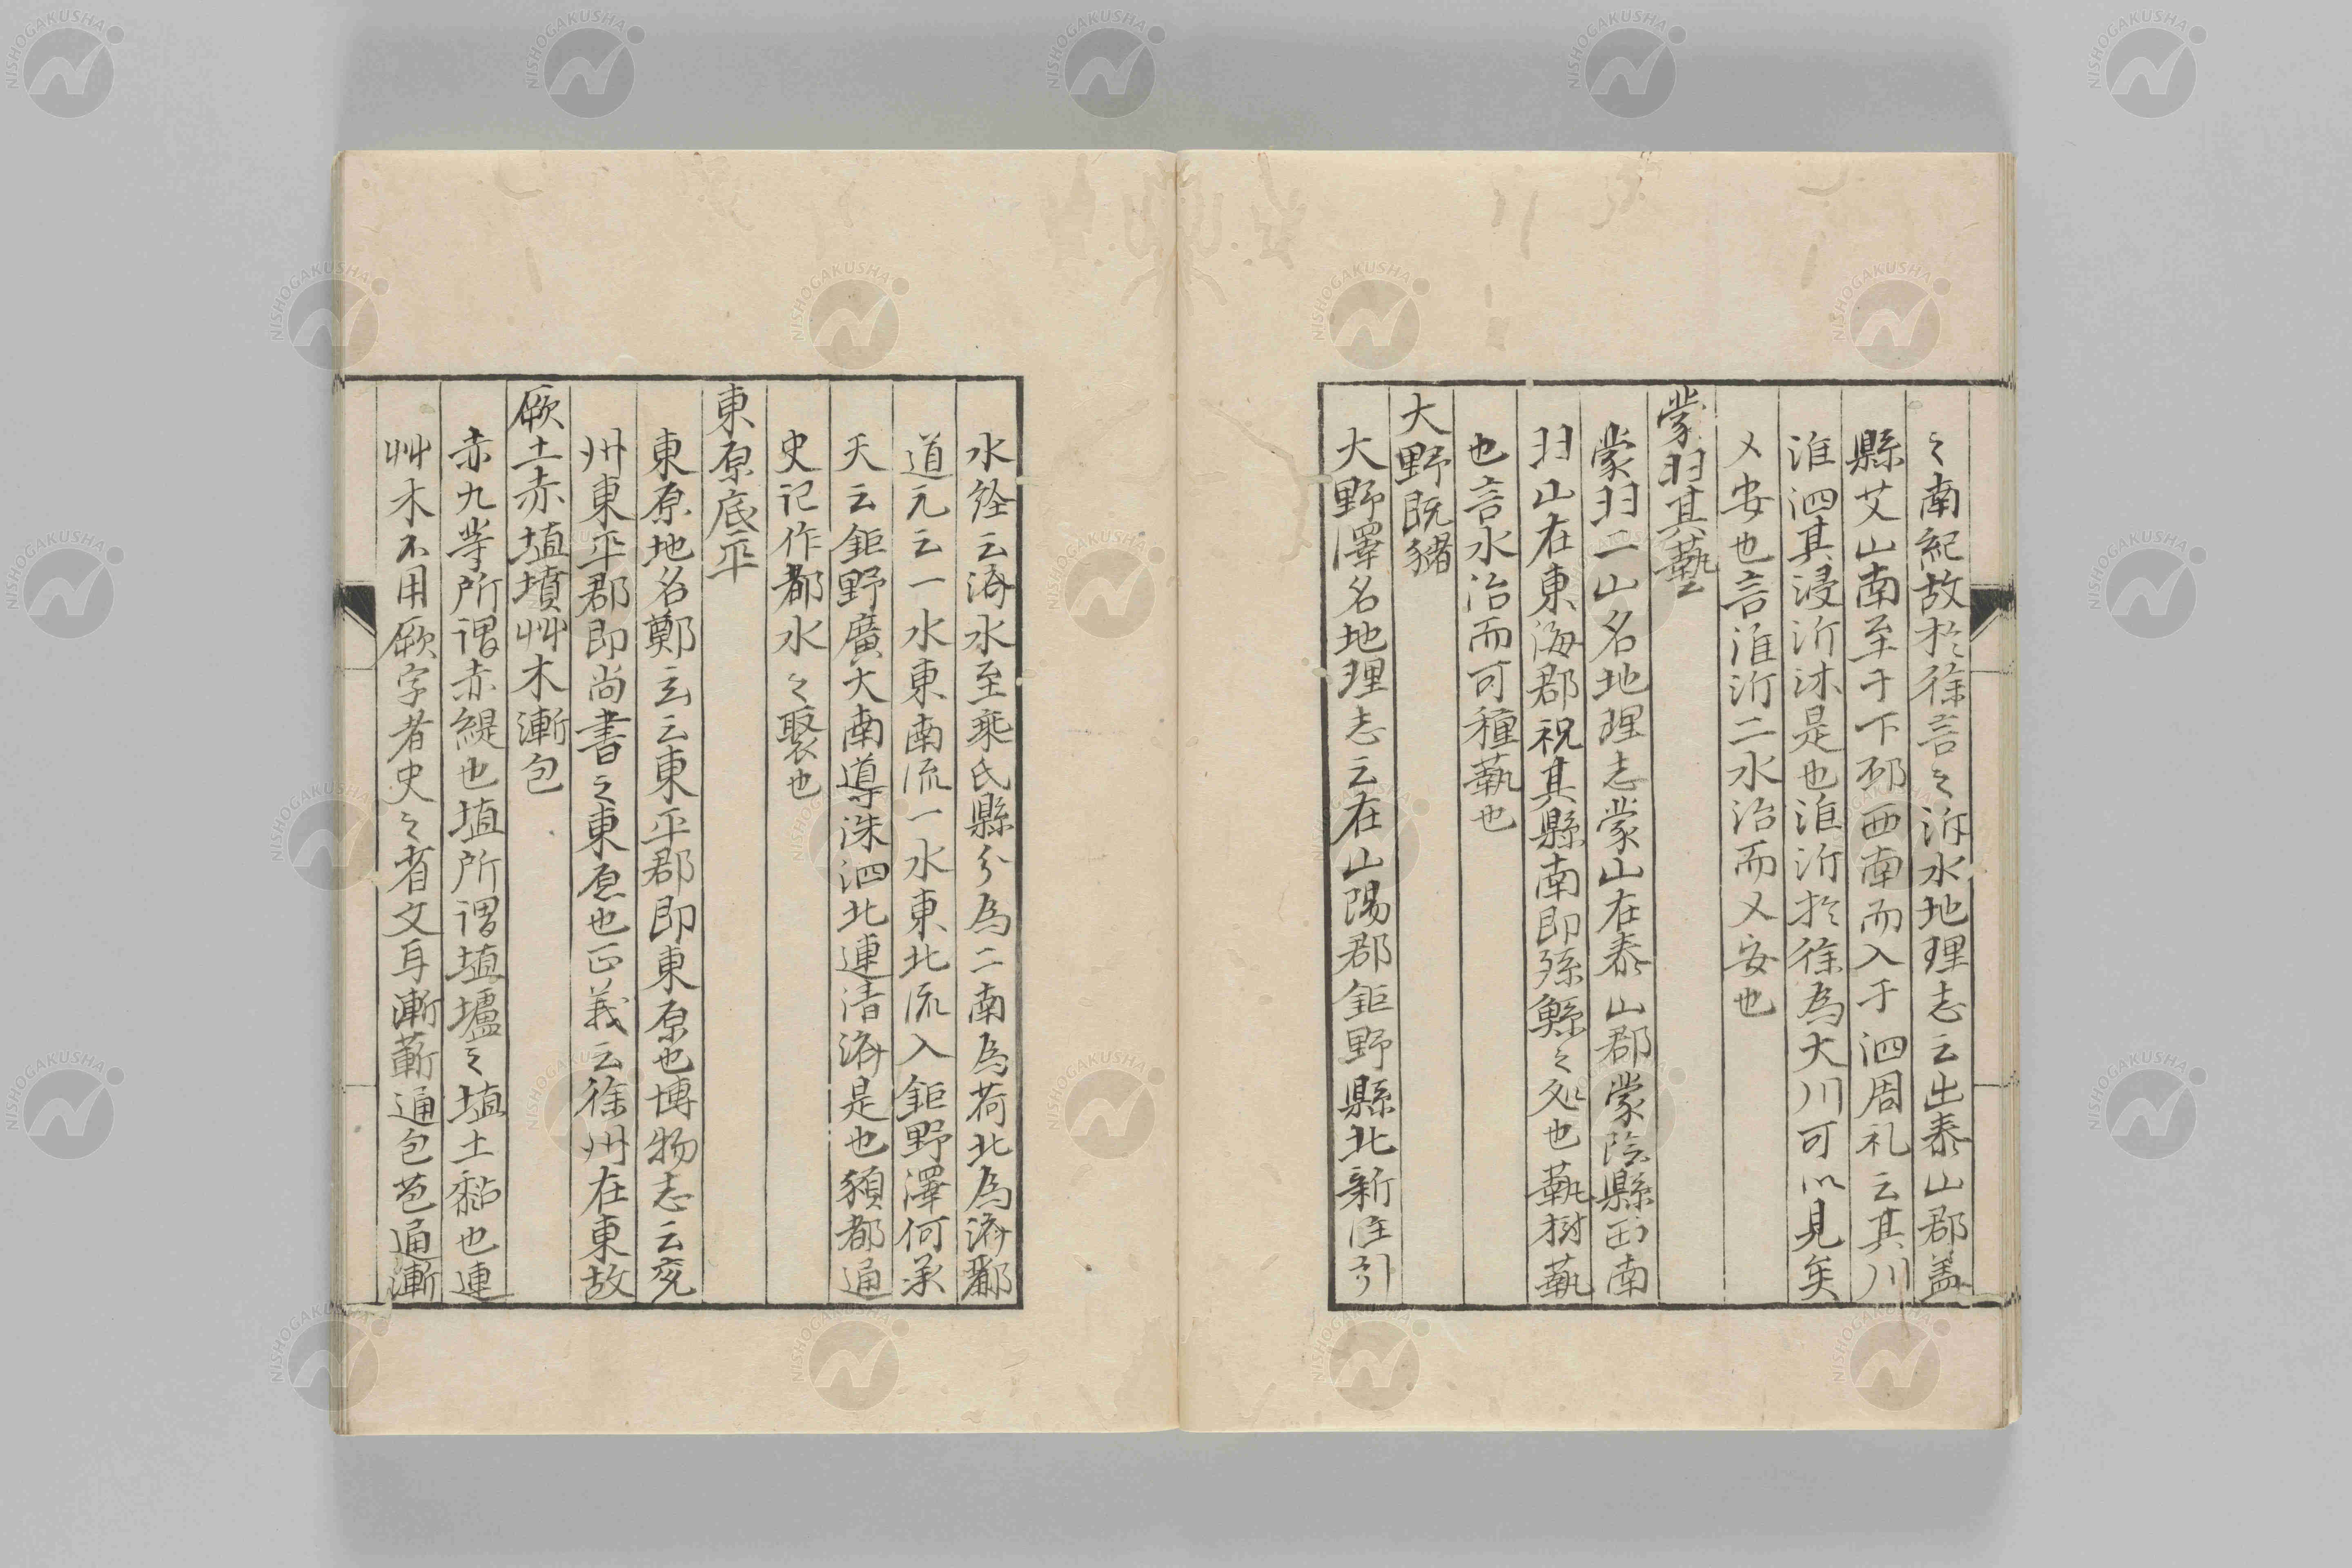 之南紀故於徐言之沂水地理志云出泰山郡盖
縣艾山南至于下邳西南而入于泗周礼云其川
淮泗其浸沂沭是也淮沂於徐為大川可以見矣
乂安也言淮沂二水治而乂安也
蒙羽其藝
蒙羽二山名地理志蒙山在泰山郡蒙陰縣西南
羽山在東海郡祝其縣南即殛鯀之処也蓺樹蓺
也言水治而可種蓺也
大野既豬
大野澤名地理志云在山陽郡鉅野縣北新注引
水経云済水至乘氏縣分為二南為荷北為済酈
道元云一水東南流一水東北流入鉅野澤何承
天云鉅野廣大南導洙泗北連清済是也豬都通
史记作都水之聚也
東原底平
東原地名鄭玄云東平郡即東原也博物志云兖
州東平郡即尚書之東原也正義云徐州在東故
厥土赤埴墳艸木漸包
赤九等所谓赤緹也埴所谓埴壚之埴土黏也連
艸木不用厥字者史之省文耳漸蔪通包苞通漸
NISHOGAKUSHA